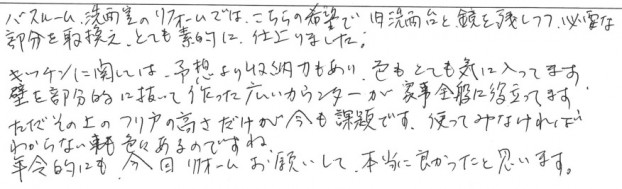 バスルーム、洗面室のリフォームでは、こちらの希望で旧洗面台と鏡を残しつつ、必要な
部分を取換え、とても素的に仕上りました。
キッチンに関しては、予想より収納力もあり、色もとても気に入ってます
壁を部分的に抜いて作った広いカウンターが家事全般に役立ってます
ただその上のフリ戸の高さだけが今も課題です。使ってみなければ
わからない事も色々あるのですね
年令的にも、今回リホームお願いして、本当に良かったと思います。